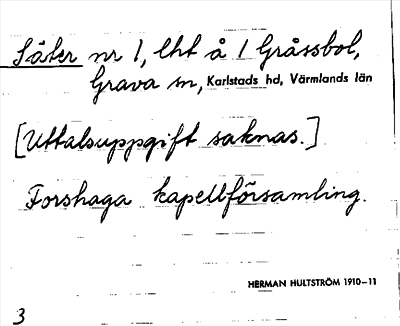 Säter nr 1, lht å 1 Gråssbol,
Grava sn, Karlstads hd, Värmlands län
[Uttalsuppgift saknas.]
Forshaga kapellförsamling.
HERMAN HULTSTRÖM 1910-11
3